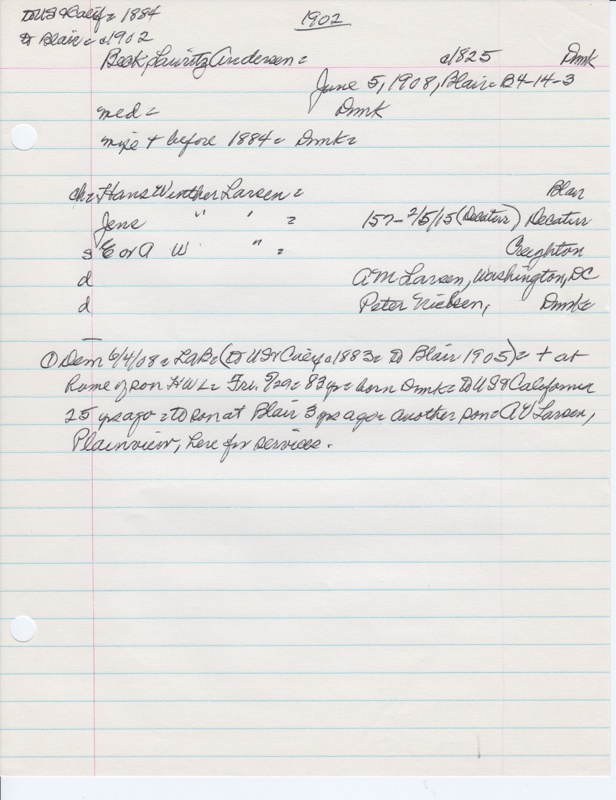 to US & Calif = 1884
1902
to Blair = c1902
Beck, Lauritz Andersen = c1825 Dmk
June 5, 1908, Blair = B4-14-3
med = Dmk
mife + before 1884 = Dmk =
ch = Hans Winther Larsen = Blair
Jens " " = 157-2/5/15 (Decatur) Decatur
s E or A W " = Creighton
d AM Larsen, Washington, DC
d Peter Nielsen, Dmk =
① Dem 6/4/08 = LaB = (to US & Calif c1883 = to Blair 1905) = + at
home of son HWL = Fri. 5/29 = 83 yr = born Dmk = to US & California
25 yrs ago = to son at Blair 3 yrs ago = another son = AV Larsen,
Plainview, here for services.